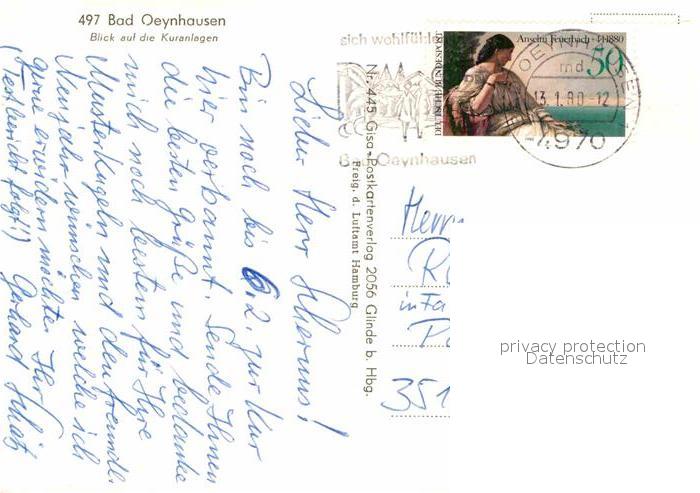 497 Bad Oeynhausen
Blick auf die Kuranlagen
Lieber Herr
Bin noch bis 6.2. zur Kur
hier verbannt. Sende Ihnen
die besten Grüße und bedanke
mich noch bestens für Ihre
und den freundl.
Neujahrswünschen welche ich
gerne erwidern möchte. Ihr
(Testbericht folgt!) Gerhard
Nr. 445 Gisa-Postkartenverlag 2056 Glinde b. Hbg.
Freig. d. Luftamt Hamburg
sich wohlfühlen
Bad Oeynhausen
Anselm Feuerbach
1880
50
DEUTSCHE BUNDESPOST
OEYNHAUSEN
md
13.1.80-12
4970
Herrn
in Fa
351
privacy protection
Datenschutz